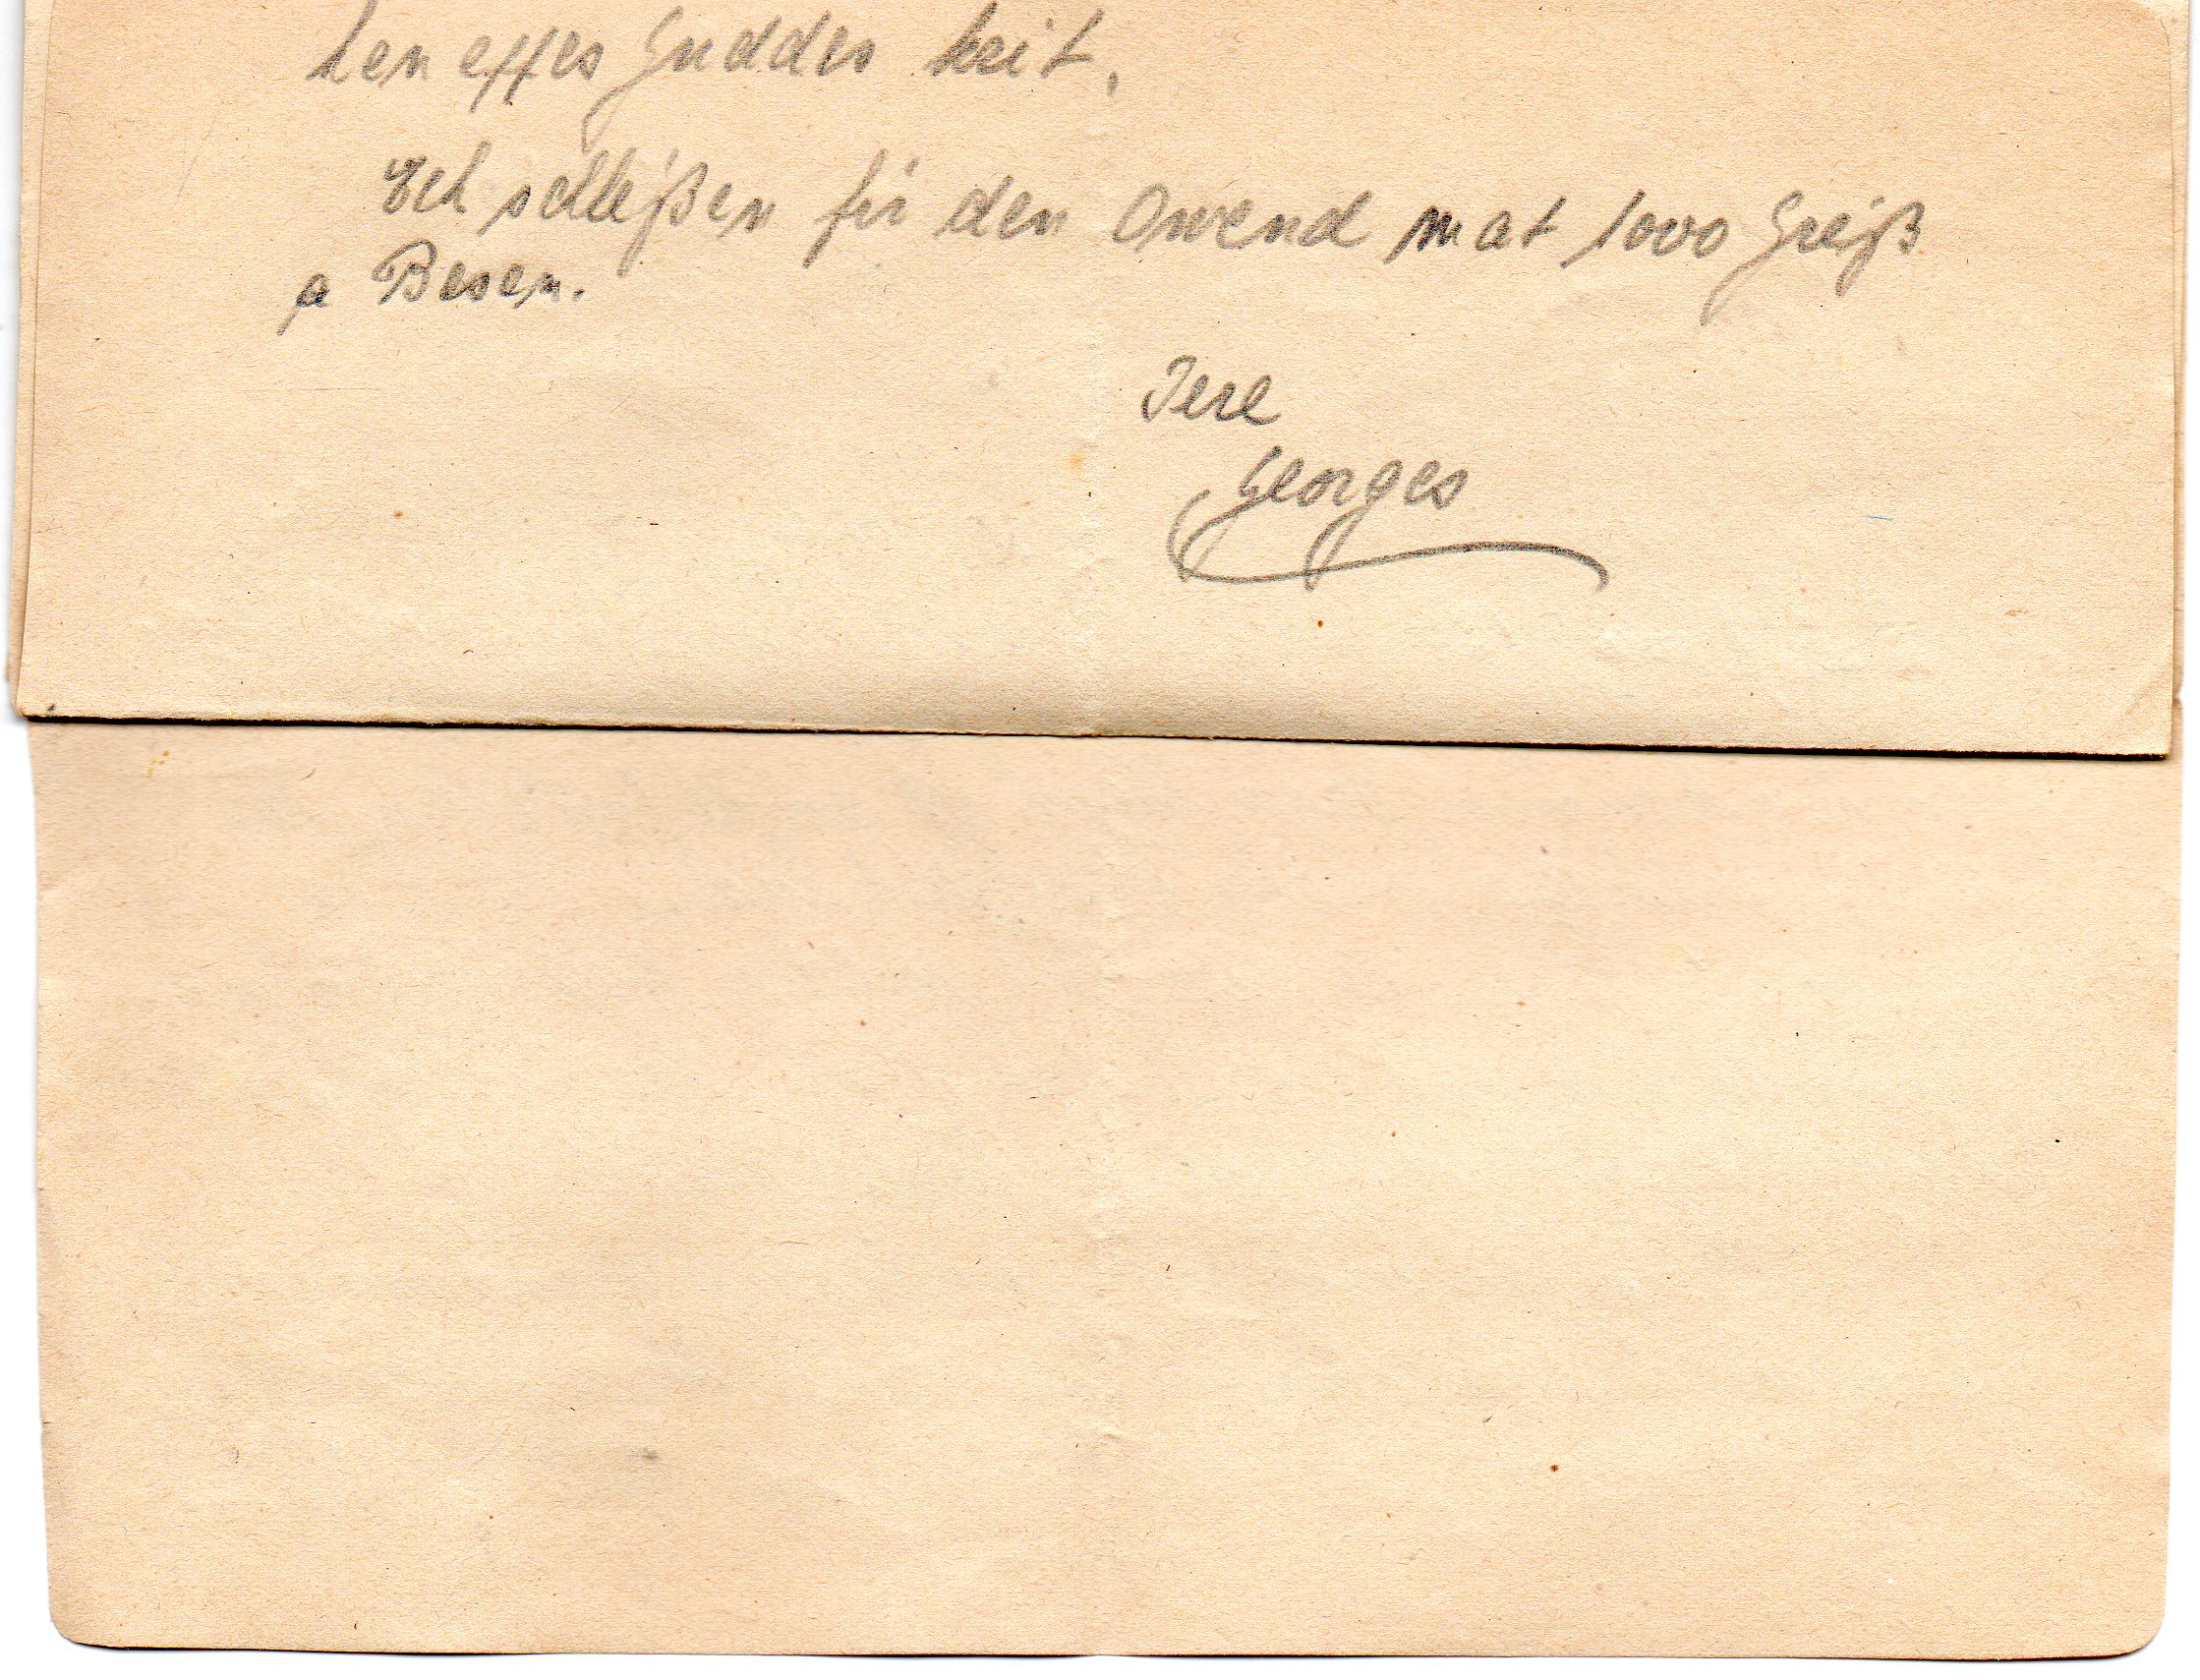 ten effes Guddes keit.
Ech schleißen fir den Owend mat 1000 Greiß
a Besen.
Iere
Georges